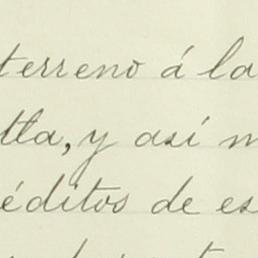 terreno á la
tla, y así m
éditos de es